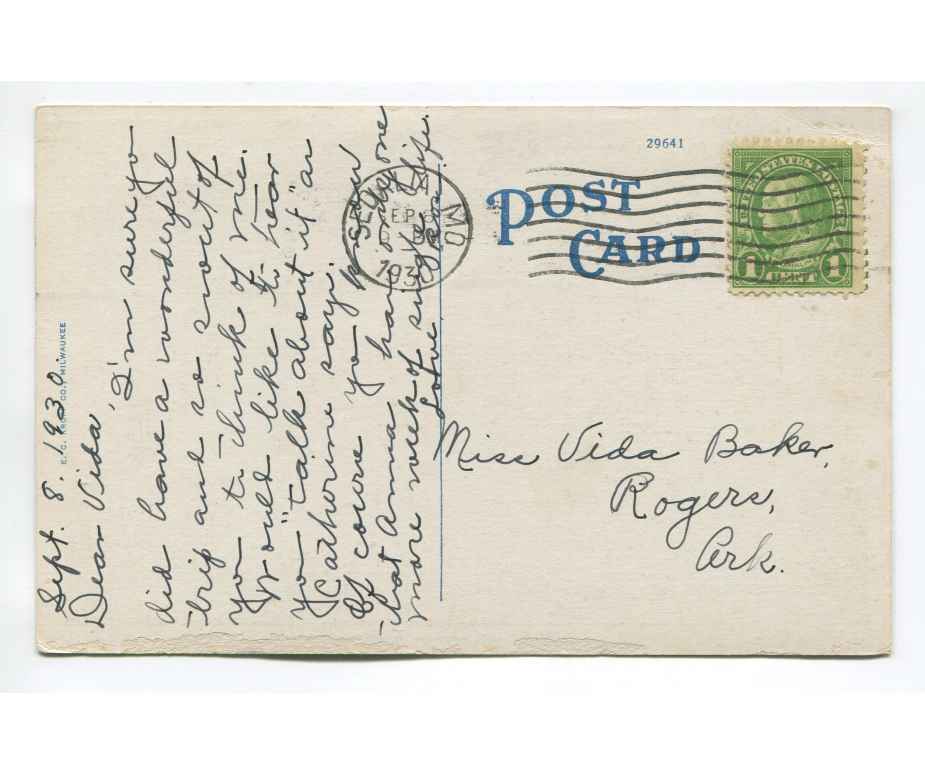 Sept. 8. 1930
Dear Vida
I'm sure yo
did have a wonderful
trip and so smart of
you to think of me.
Would like to hear
you "talk about it" as
Catherine says.
Of course you know
that Anna has only one
more week of single life.
Love
29641
POST
CARD
SEP 8
1930
MO
UNITED STATES POSTAGE
1 CENT 1
Miss Vida Baker,
Rogers,
Ark.
E. C. KROPP CO., MILWAUKEE